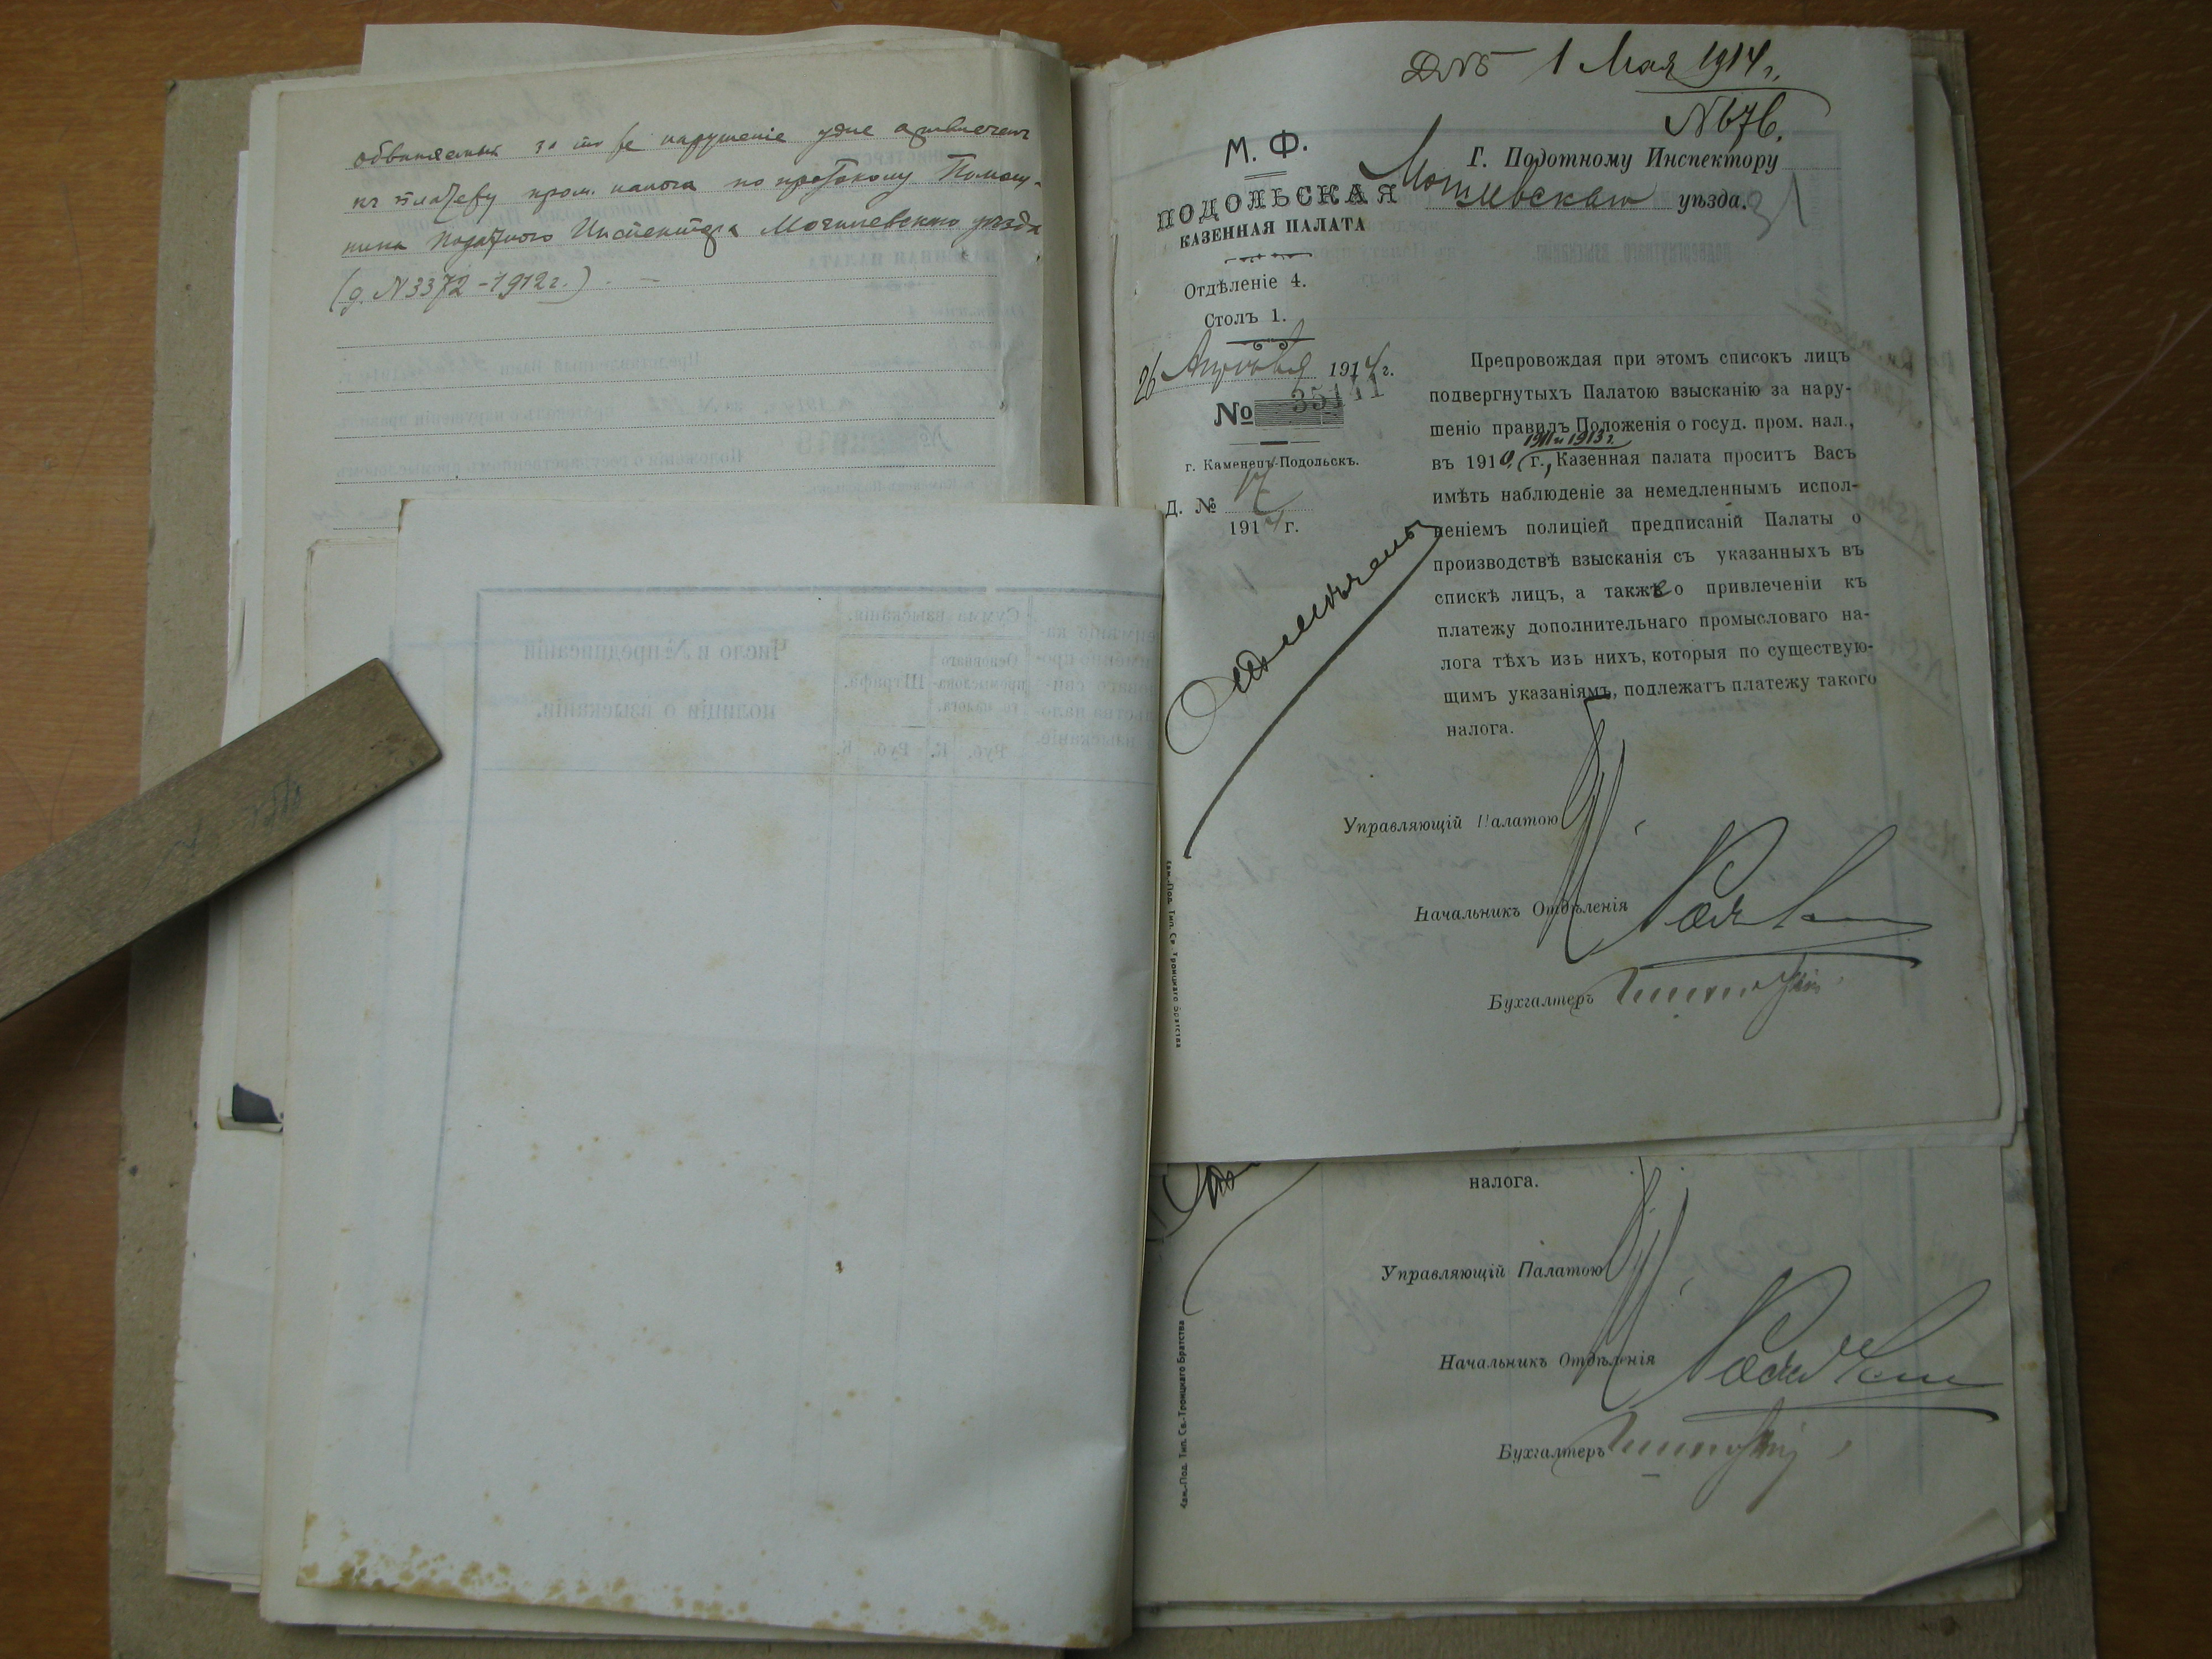 обвиняемых за то же нарушеніе уже
къ платежу пром. налога по протоколу Помощ-
ника Податного Инспектора Могилевского уѣзда
(д. N 3372 - 1912 г.)
1 Мая 1914 г.
N 676.
М. Ф.
ПОДОЛЬСКАЯ
КАЗЕННАЯ ПАЛАТА
Отдѣленіе 4.
Столъ 1.
26 Апрѣля 1914 г.
№ 35141
г. Каменецъ-Подольскъ.
Д. № 17
1914 г.
Г. Подотному Инспектору
Могилевскаго уѣзда.
31
Препровождая при этомъ списокъ лицъ
подвергнутыхъ Палатою взысканію за нару-
шеніо правилъ Положенія о госуд. пром. нал.,
1911 и 1913 г.
въ 1910 г., Казенная палата проситъ Васъ
имѣть наблюденіе за немедленнымъ испол-
неніемъ полиціей предписаній Палаты о
производствѣ взысканія съ указанныхъ въ
спискѣ лицъ, а также о привлеченіи къ
платежу дополнительнаго промысловаго на-
лога тѣхъ изъ нихъ, которыя по существую-
щимъ указаніямъ, подлежатъ платежу такого
налога.
Управляющій Палатою
Начальникъ Отдѣленія
Бухгалтеръ
Кам.-Под. Тип. Св. Троицкаго Братства
налога.
Управляющій Палатою
Начальникъ Отдѣленія
Бухгалтеръ
Кам.-Под. Тип. Св.-Троицкаго Братства
Число и № предписаній
полиціи о взысканіи.
Сумма взысканія.
Основнаго
промыслова-
го налога.
Штрафа.
Руб. К. Руб. К.